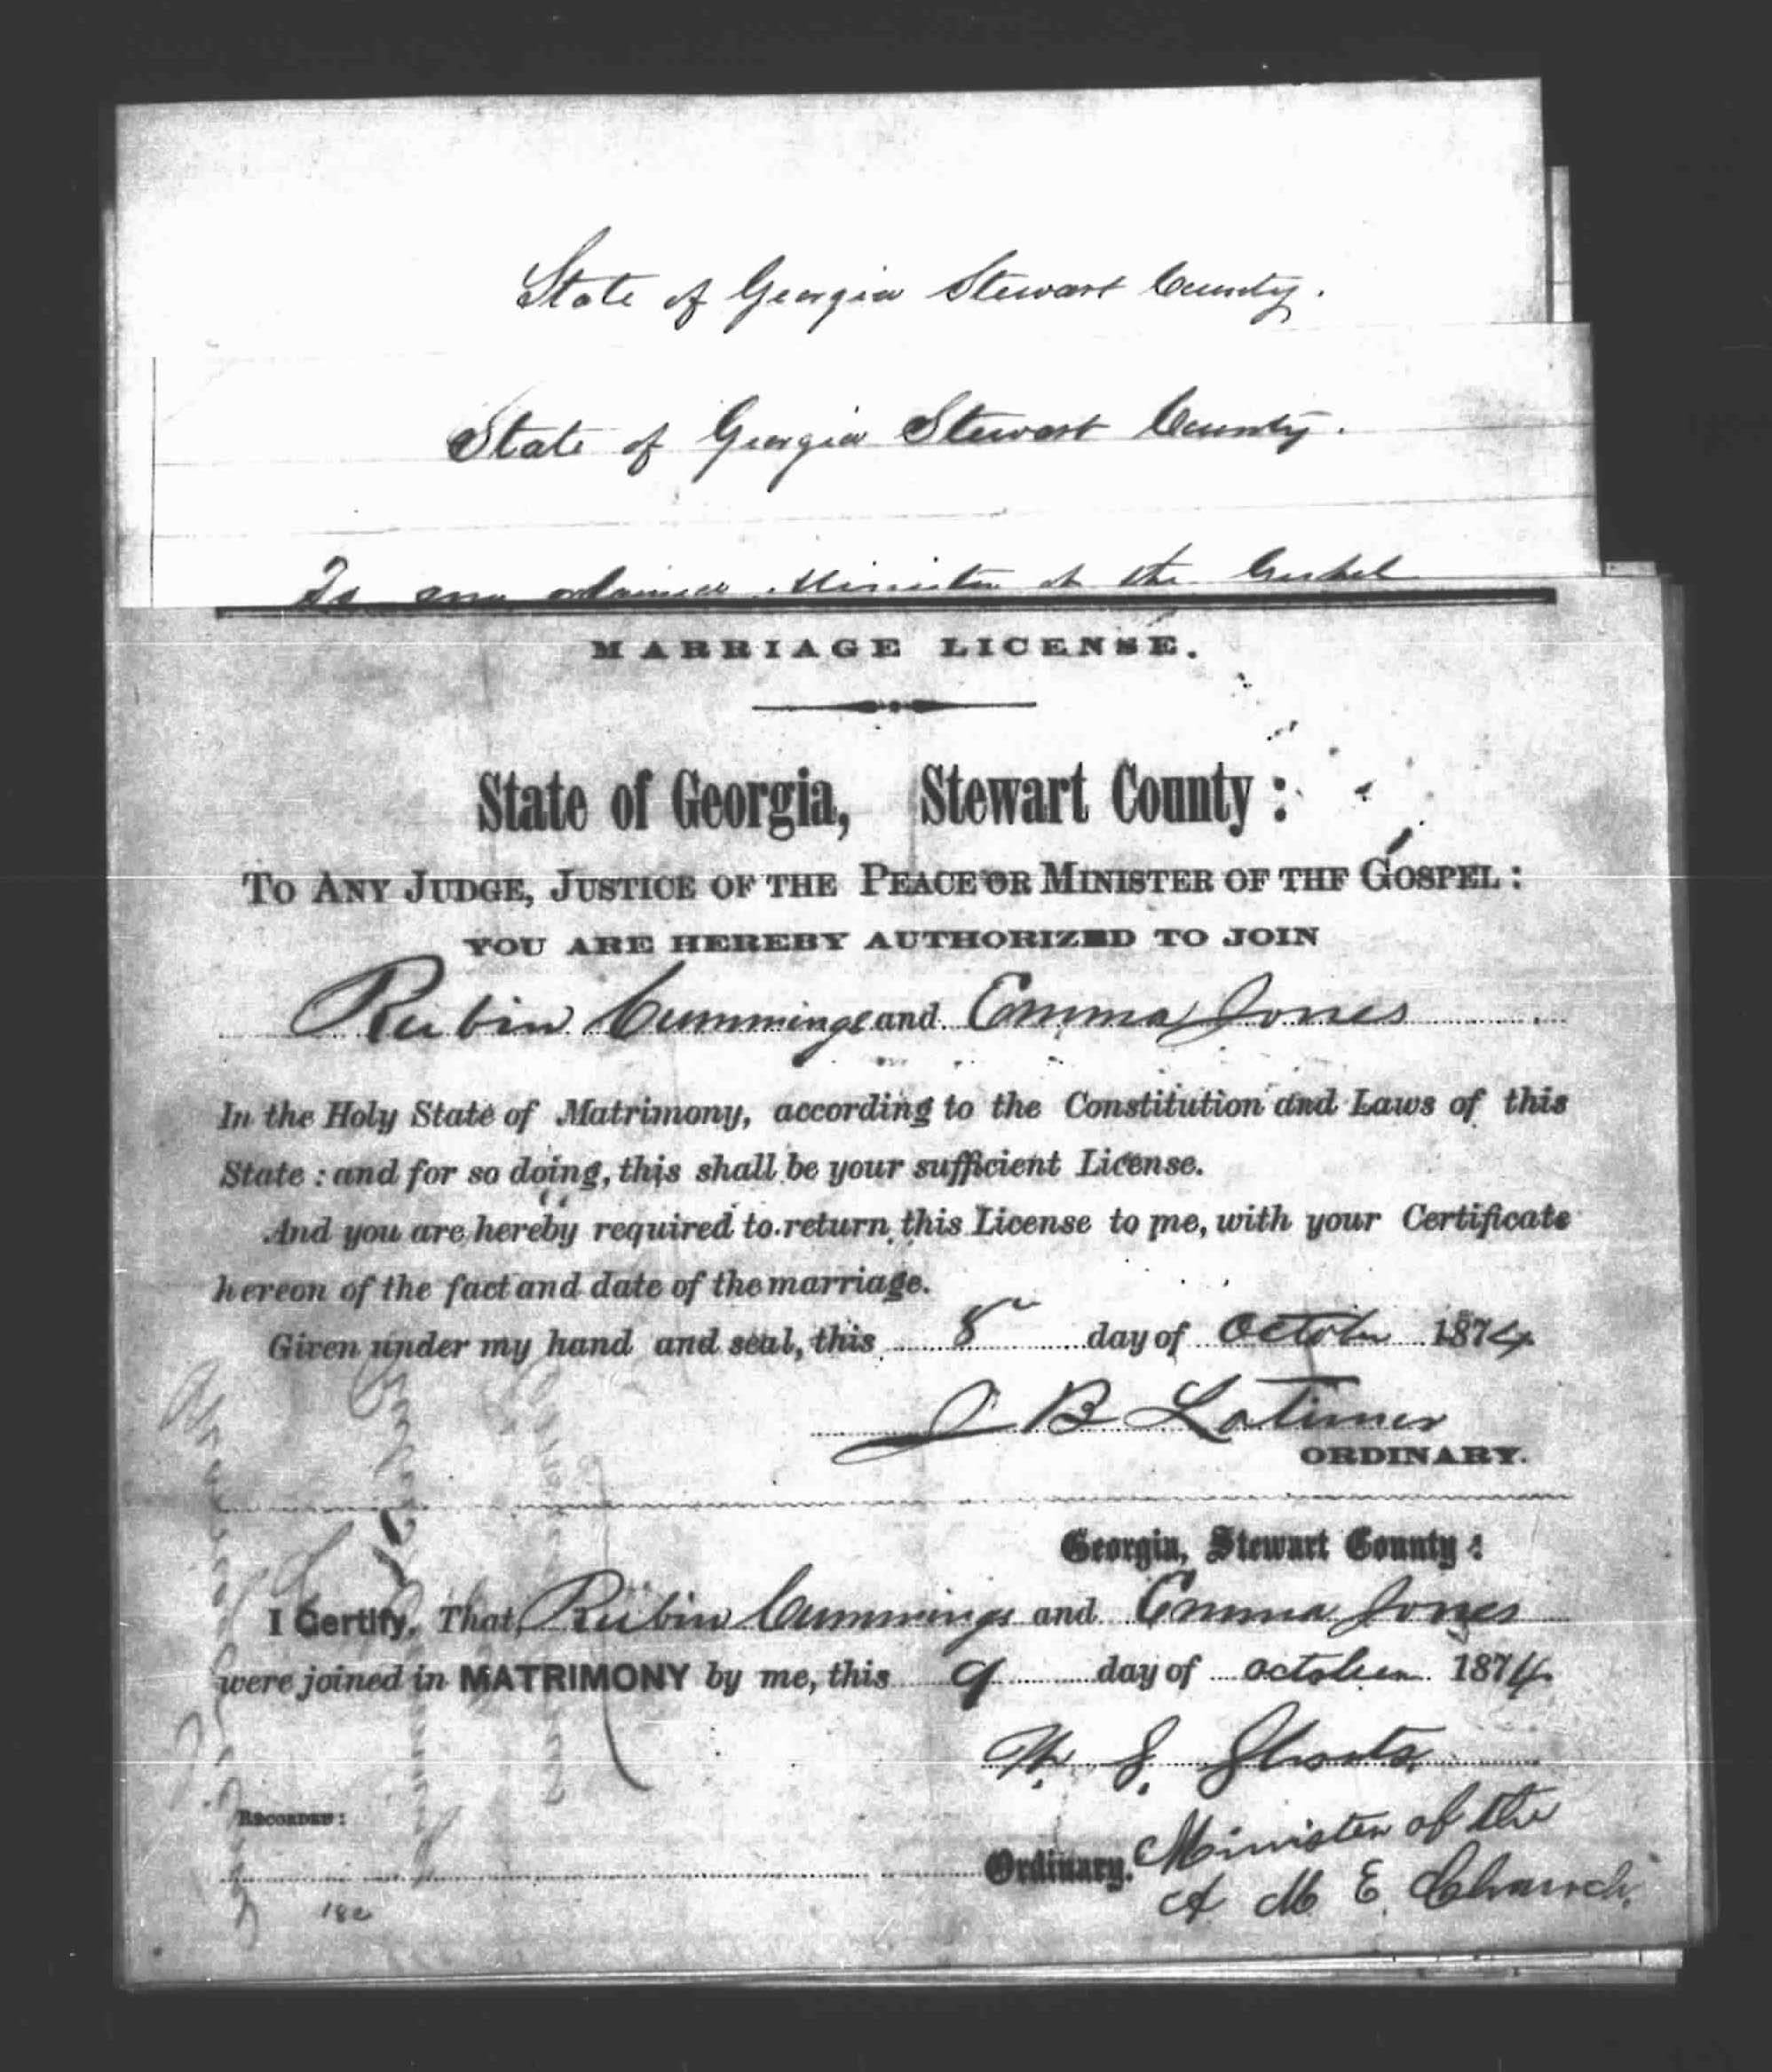 State of Georgia Stewart County.
State of Georgia Stewart County.
To any ordained Minister of the Gospel
MARRIAGE LICENSE.
State of Georgia, Stewart County:
TO ANY JUDGE, JUSTICE OF THE PEACE OR MINISTER OF THE GOSPEL:
YOU ARE HEREBY AUTHORIZED TO JOIN
Rubin Cummings and Emma Jones
In the Holy State of Matrimony, according to the Constitution and Laws of this
State: and for so doing, this shall be your sufficient License.
And you are hereby required to return this License to me, with your Certificate
hereon of the fact and date of the marriage.
Given under my hand and seal, this 8 day of October 1874
J B Latimer
ORDINARY.
Georgia, Stewart County:
I Certify, That Rubin Cummings and Emma Jones
were joined in MATRIMONY by me, this 9 day of october 1874
RECORDED:
Ordinary. Minister of the
A M E Church.
182